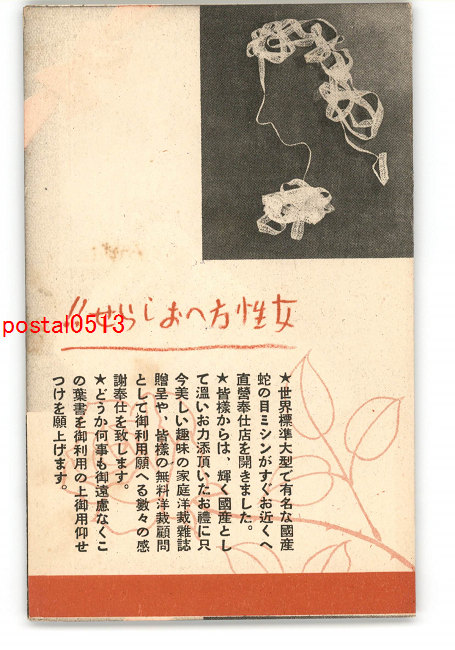 女性方へおしらせ!!
★世界標準大型で有名な國産
蛇の目ミシンがすぐお近くへ
直營奉仕店を開きました。
★皆樣からは、輝く國産とし
て溫いお力添頂いたお禮に只
今美しい趣味の家庭洋裁雜誌
贈呈や、皆樣の無料洋裁顧問
として御利用願へる數々の感
謝奉仕を致します。
★どうか何事も御遠慮なくこ
の葉書を御利用の上御用仰せ
つけを願上げます。
postal0513